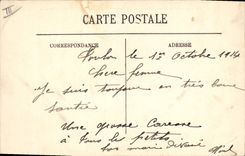 III
CARTE POSTALE
CORRESPONDANCE
ADRESSE
Toulon le 1er Octobre 1914
chere femme
je suis toujour en très bone
santée
Une grosse Caresse
à tous les petits
ton mari